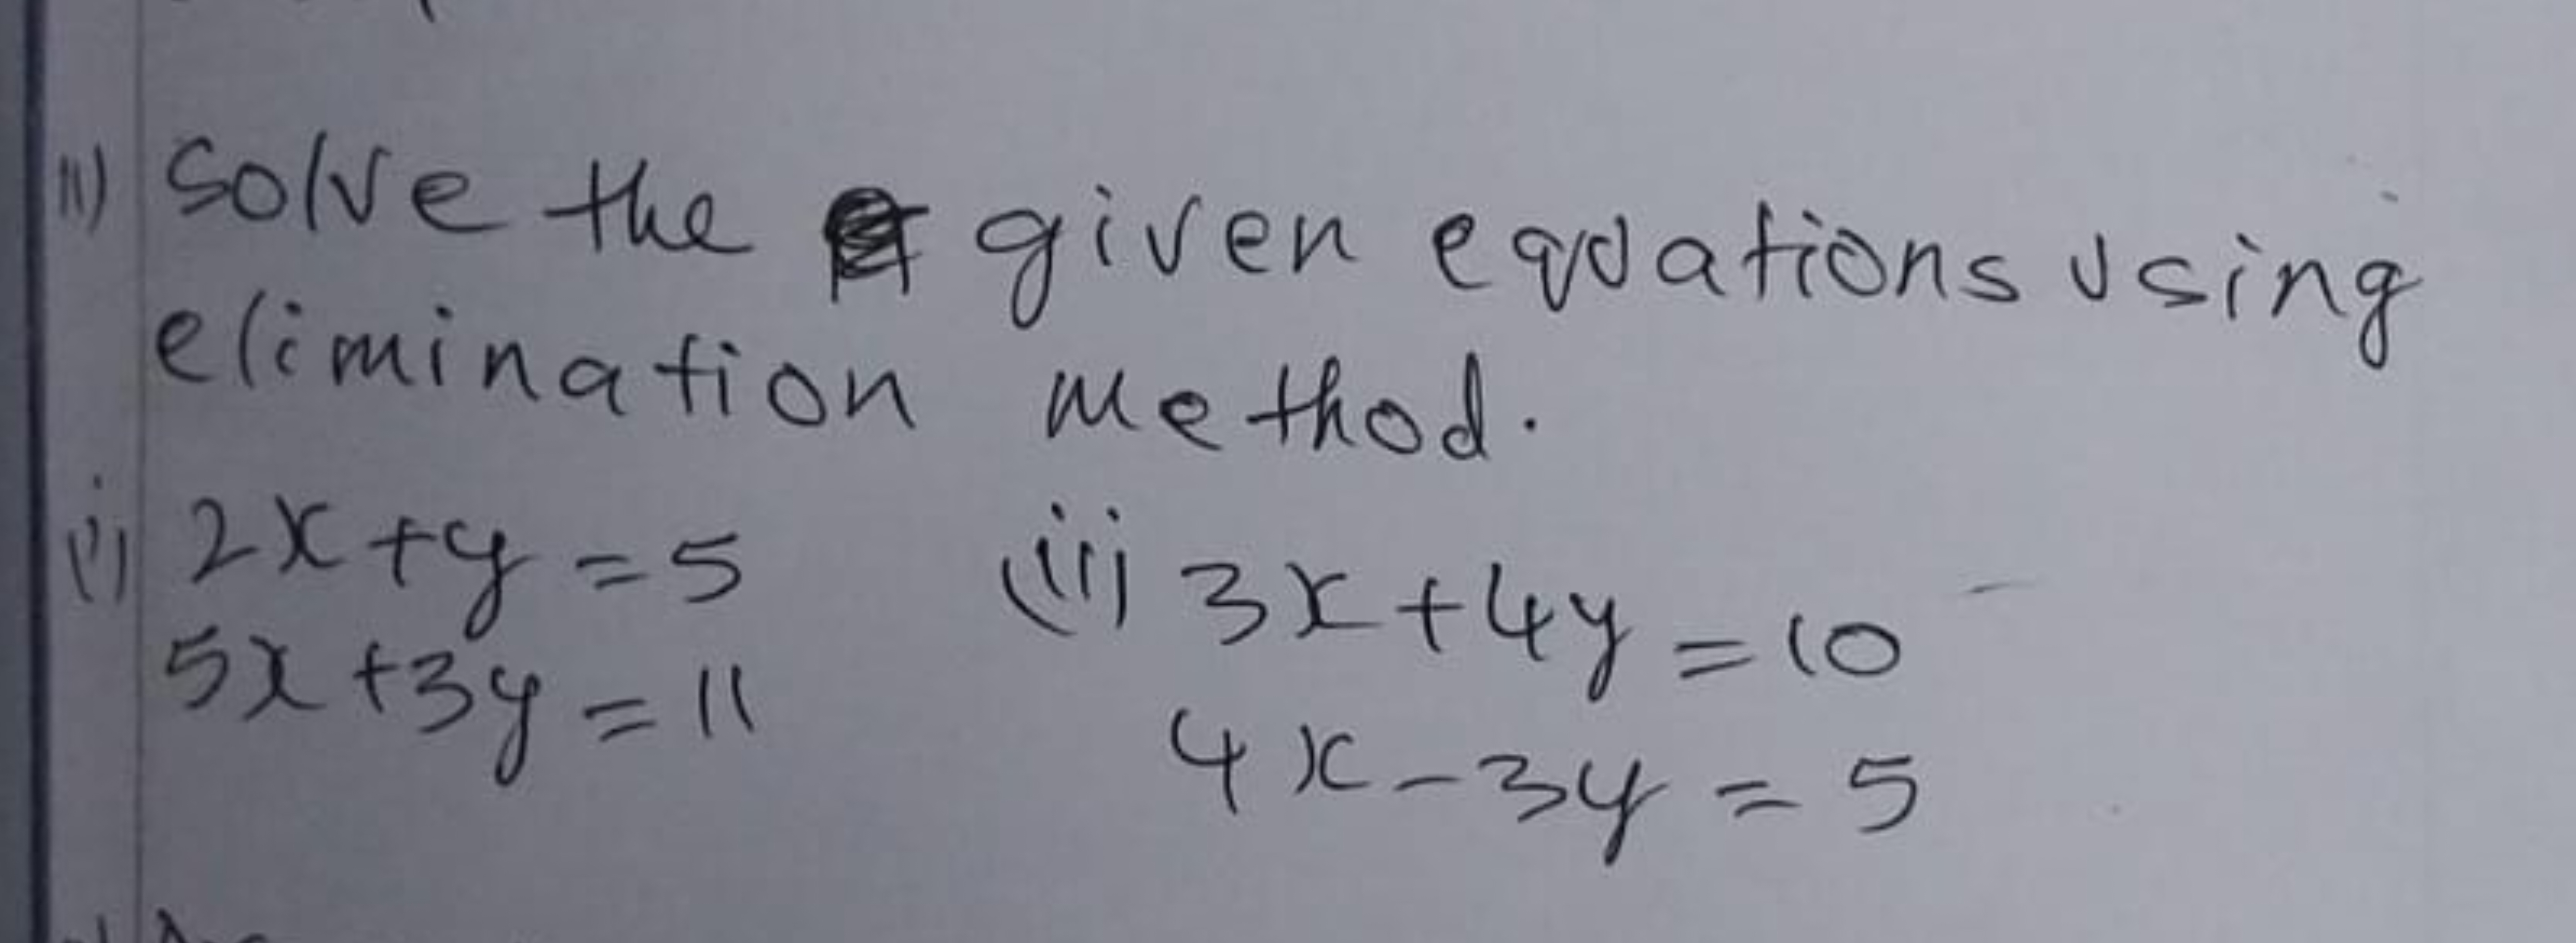 11) Solve the given equations using
elimination method.
(i) 2x+y=5 (ii) 3x+4y=10
5x+3y=11
4x-3y=5